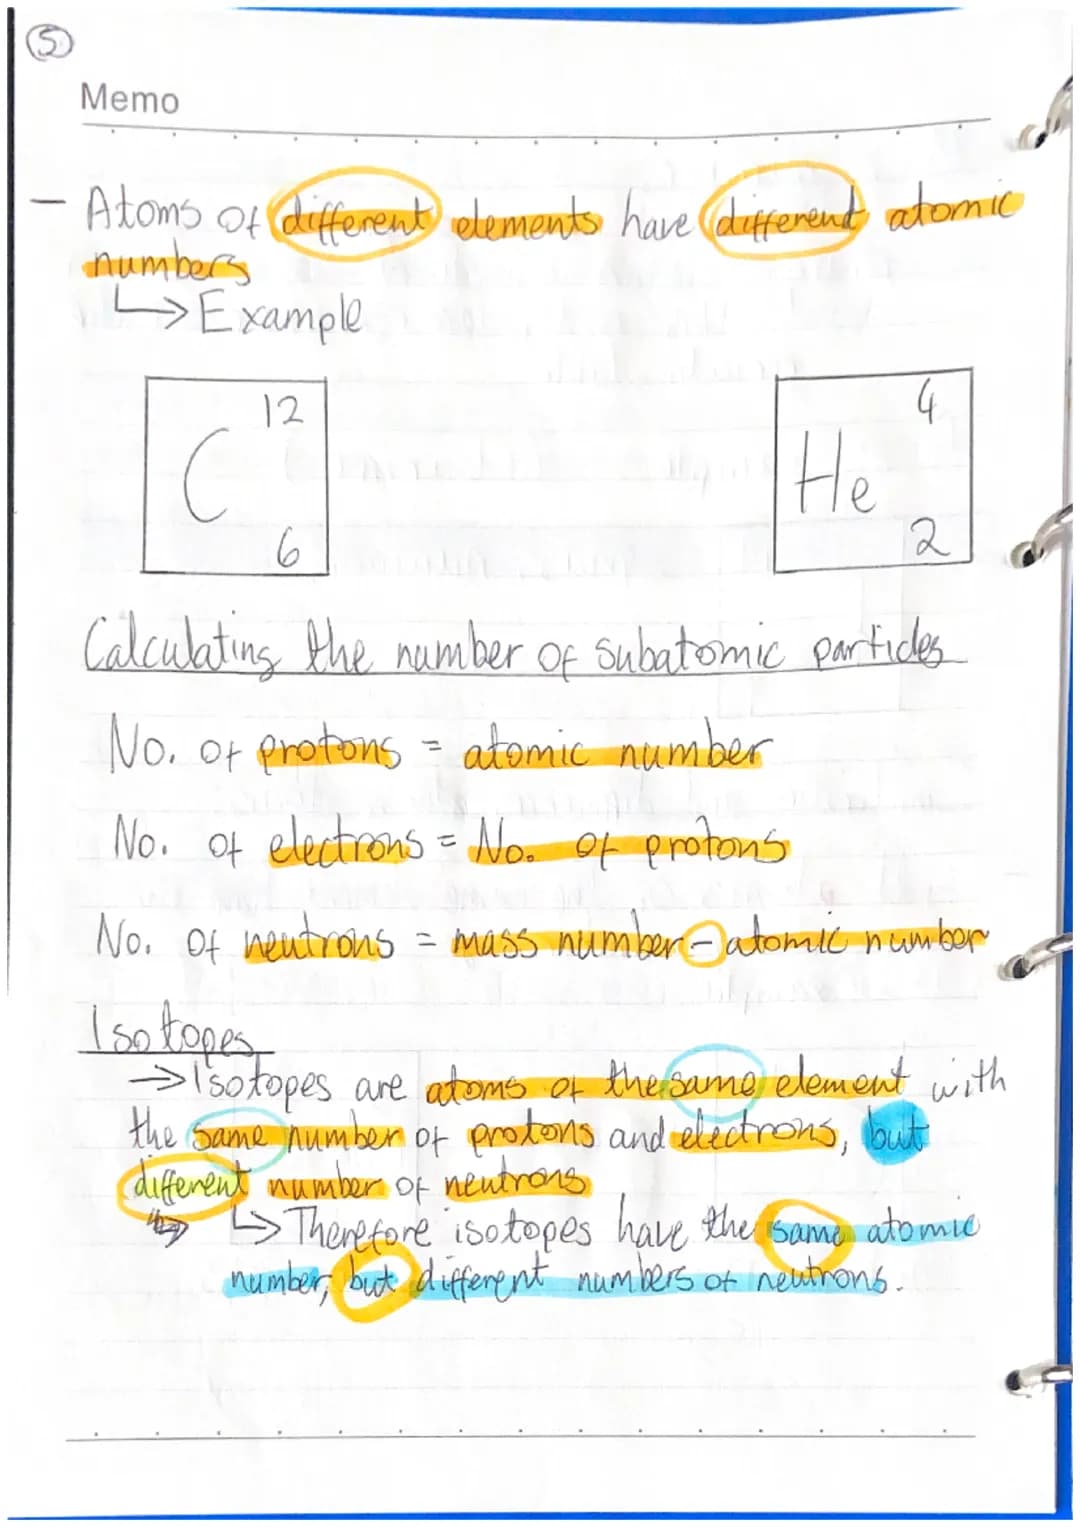 5
Memo
— Atoms of different elements have different atomic
numbers
↳ Example
12
C
6
4
He
2
Calculating the number of subatomic particles
No. of protons = atomic number
No. of electrons = No. of protons
No. of neutrons = mass number - atomic number
Isotopes
→ Isotopes are atoms of the same element with
the same number of protons and electrons, but
different number of neutrons
↳ Therefore isotopes have the same atomic
number, but different numbers of neutrons.